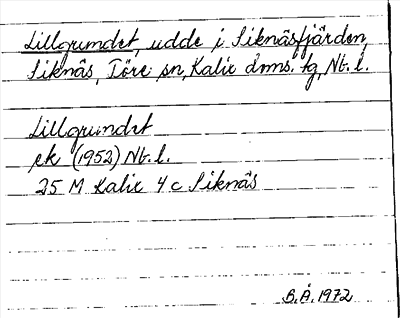 Lillgrundet, udde i Siknäsfjärden,
Siknäs, Töre sn, Kalix dms. tg, Nb. l.
Lillgrundet
ek (1952) Nb. l.
25 M Kalix 4 c Siknäs
B. Å. 1972